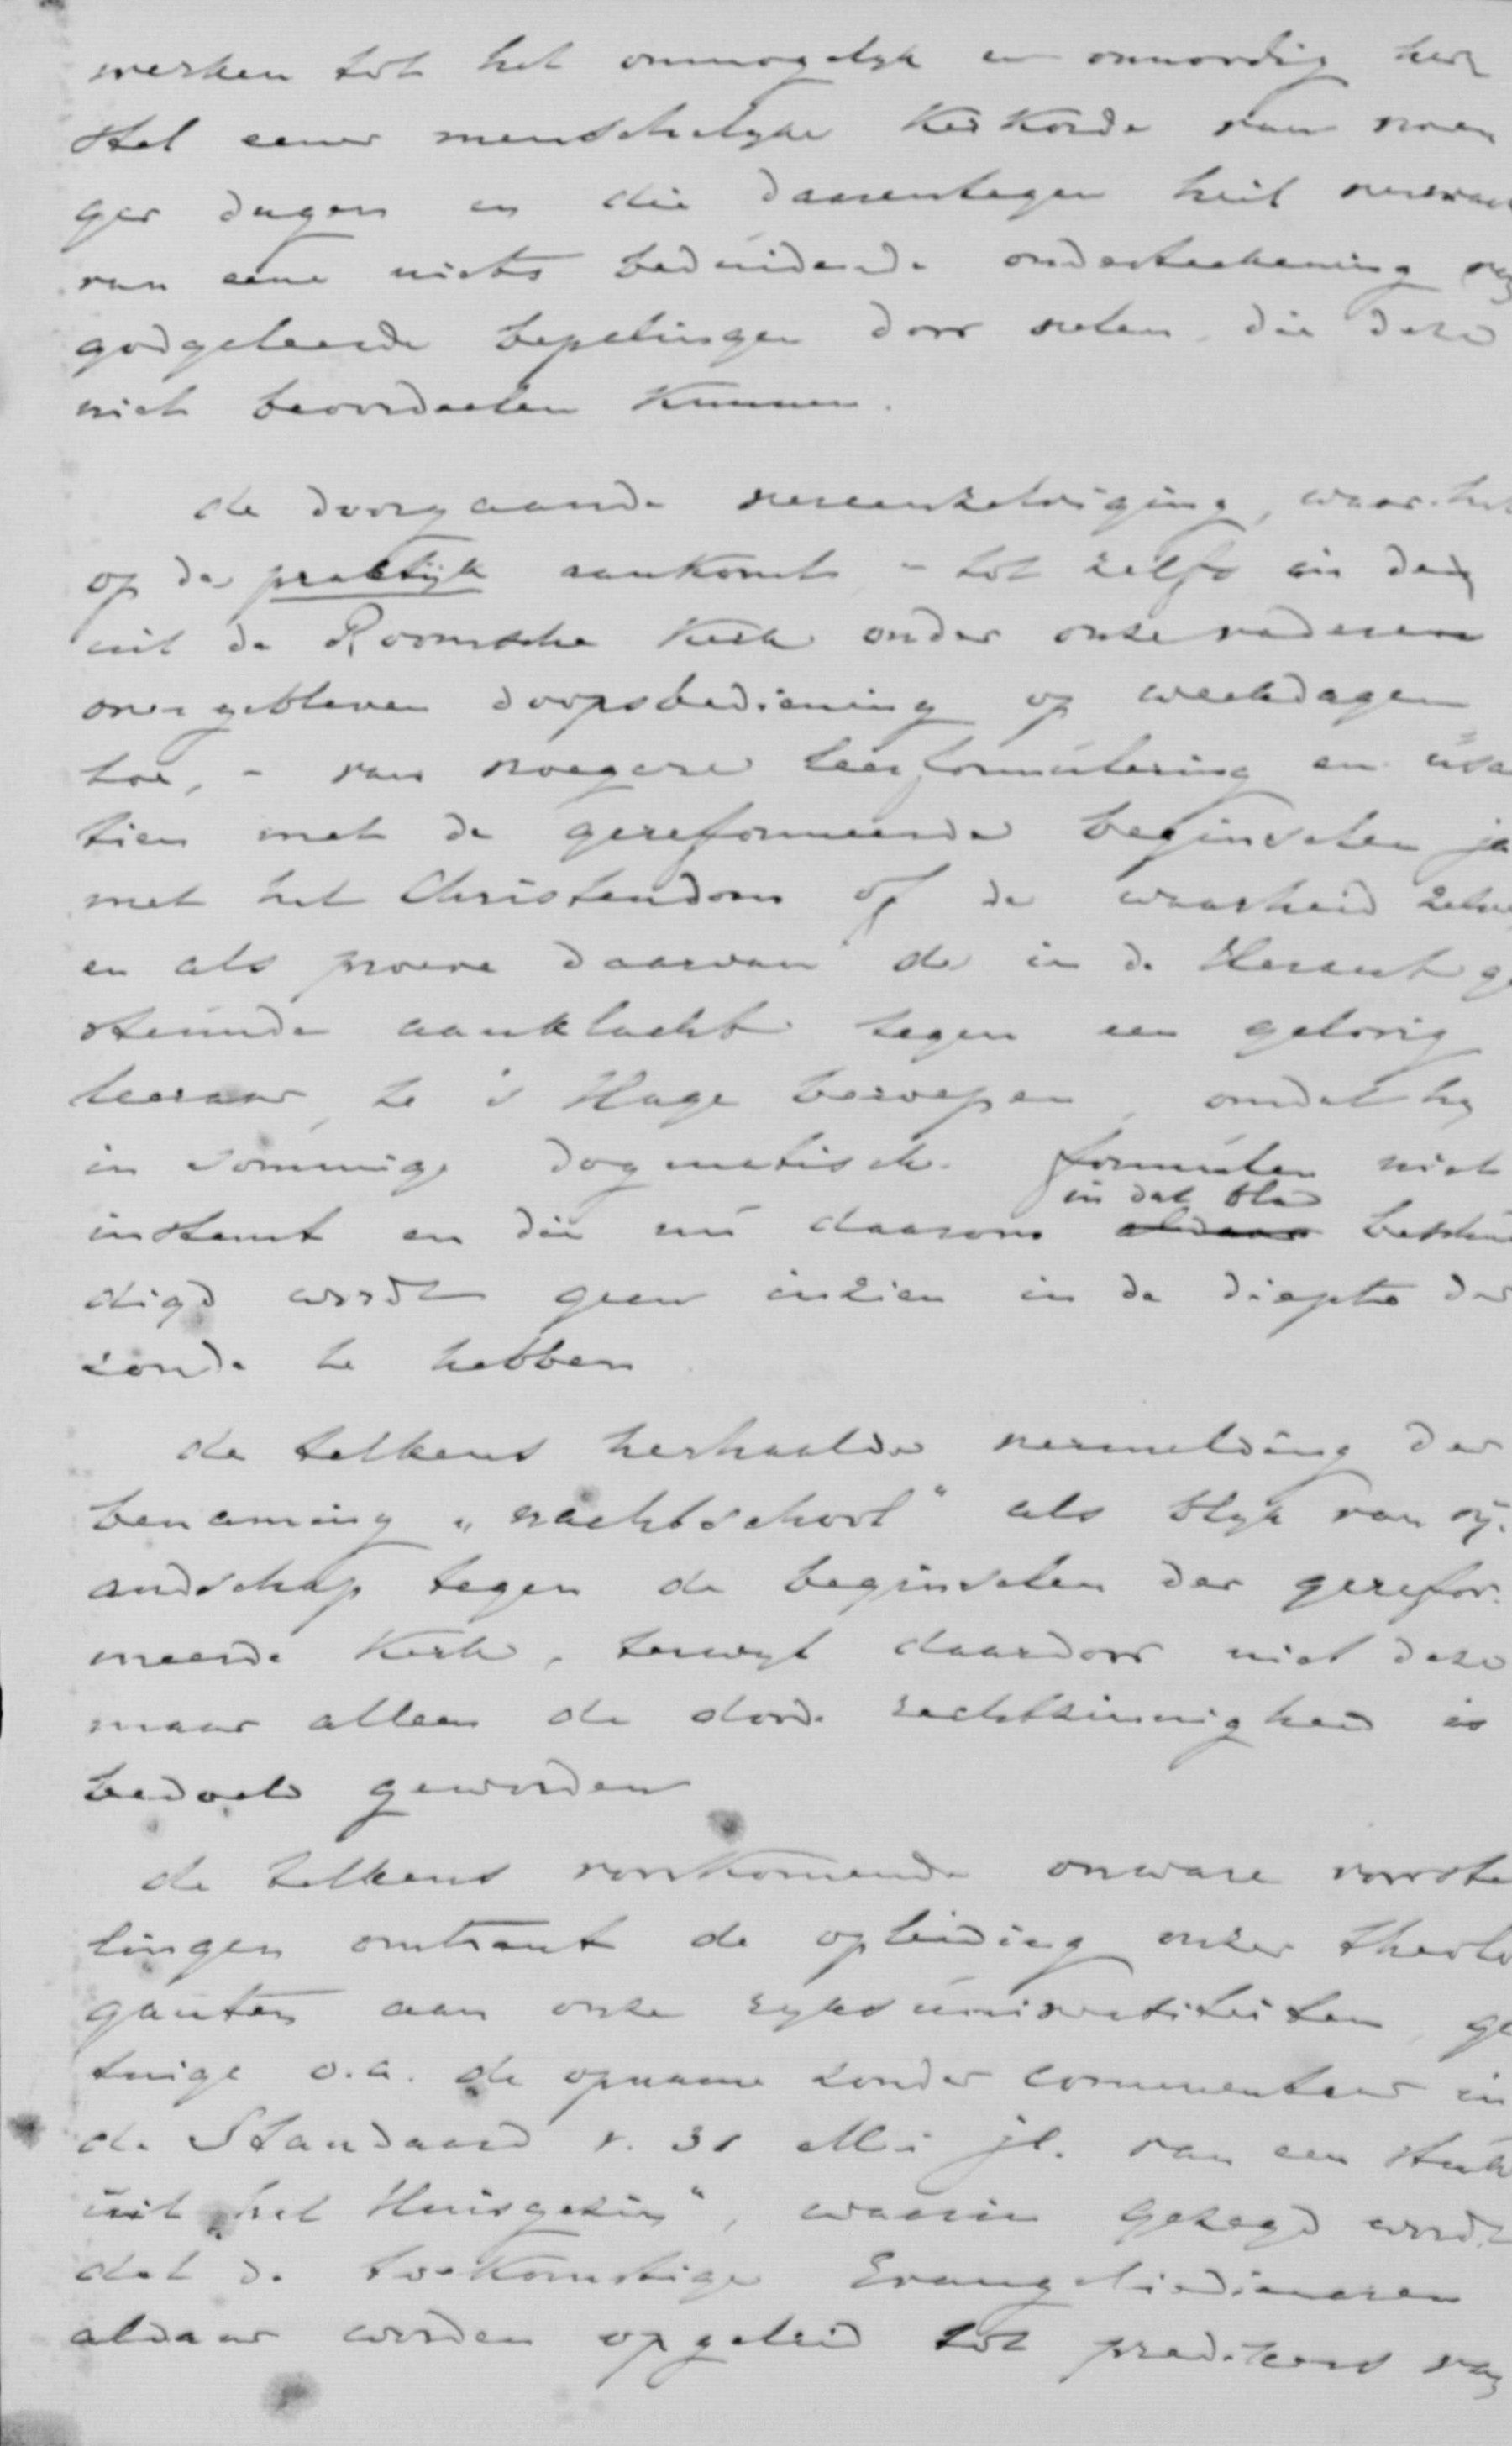 werken tot het onmogelyk en onnoodig her
stel eener menschelyke Kerkorde van vroe
ger dagen en die daarentegen heil verwacht
van eene niets beduidende onderteekening van
godgeleerde bepalingen door velen, die deze
niet beoordeelen kunnen.
de doorgaande vereenzelviging, waar het
op de praktijk aankomt - tot zelfs in den
uit de Roomsche Kerk onder onze vaderen
overgebleven doopsbediening op weekdagen
toe, - van vroegere leerformulering en usan
tien met de gereformeerde beginselen ja
met het Christendom of de waarheid zelve
en als proeve daarvan de in de Heraut ge
steunde aanklacht tegen een geloovig
leeraar te 's Hage beroepen, omdat hy
in sommige dogmatische formulen niet
in dat blad
instemt en die nu daarom aldaar beschul
digd wordt geen inzien in de diepte der
zonde te hebben
de telkens herhaalde vermelding der
benaming „nachtschool" als blyk van vy-
andschap tegen de beginselen der gerefor-
meerde Kerk, terwyl daardoor niet deze
maar alleen de doode rechtzinnigheid is
bedoeld geworden
de telkens voorkomende onware voorstel
lingen omtrent de opleiding onzer theolo
ganten aan onze ryksuniversiteiten, ge
tuige o.a. de opname zonder commentaar in
de Standaard v. 31 Mei jl. van een stuk
uit „het Huisgezin", waarin gezegd wordt
dat de toekomstige Evangeliedienaren
aldaar worden opgeleid tot predikers van